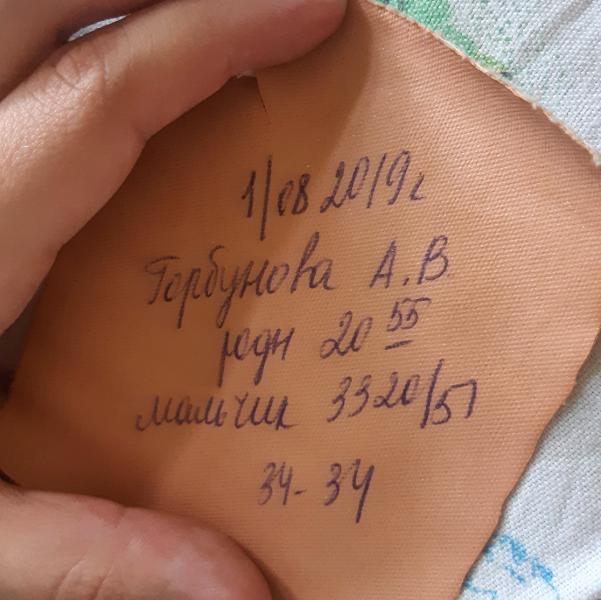 1/08 2019г
Горбунова А.В
родн 20 55
мальчик 3320/51
34-34